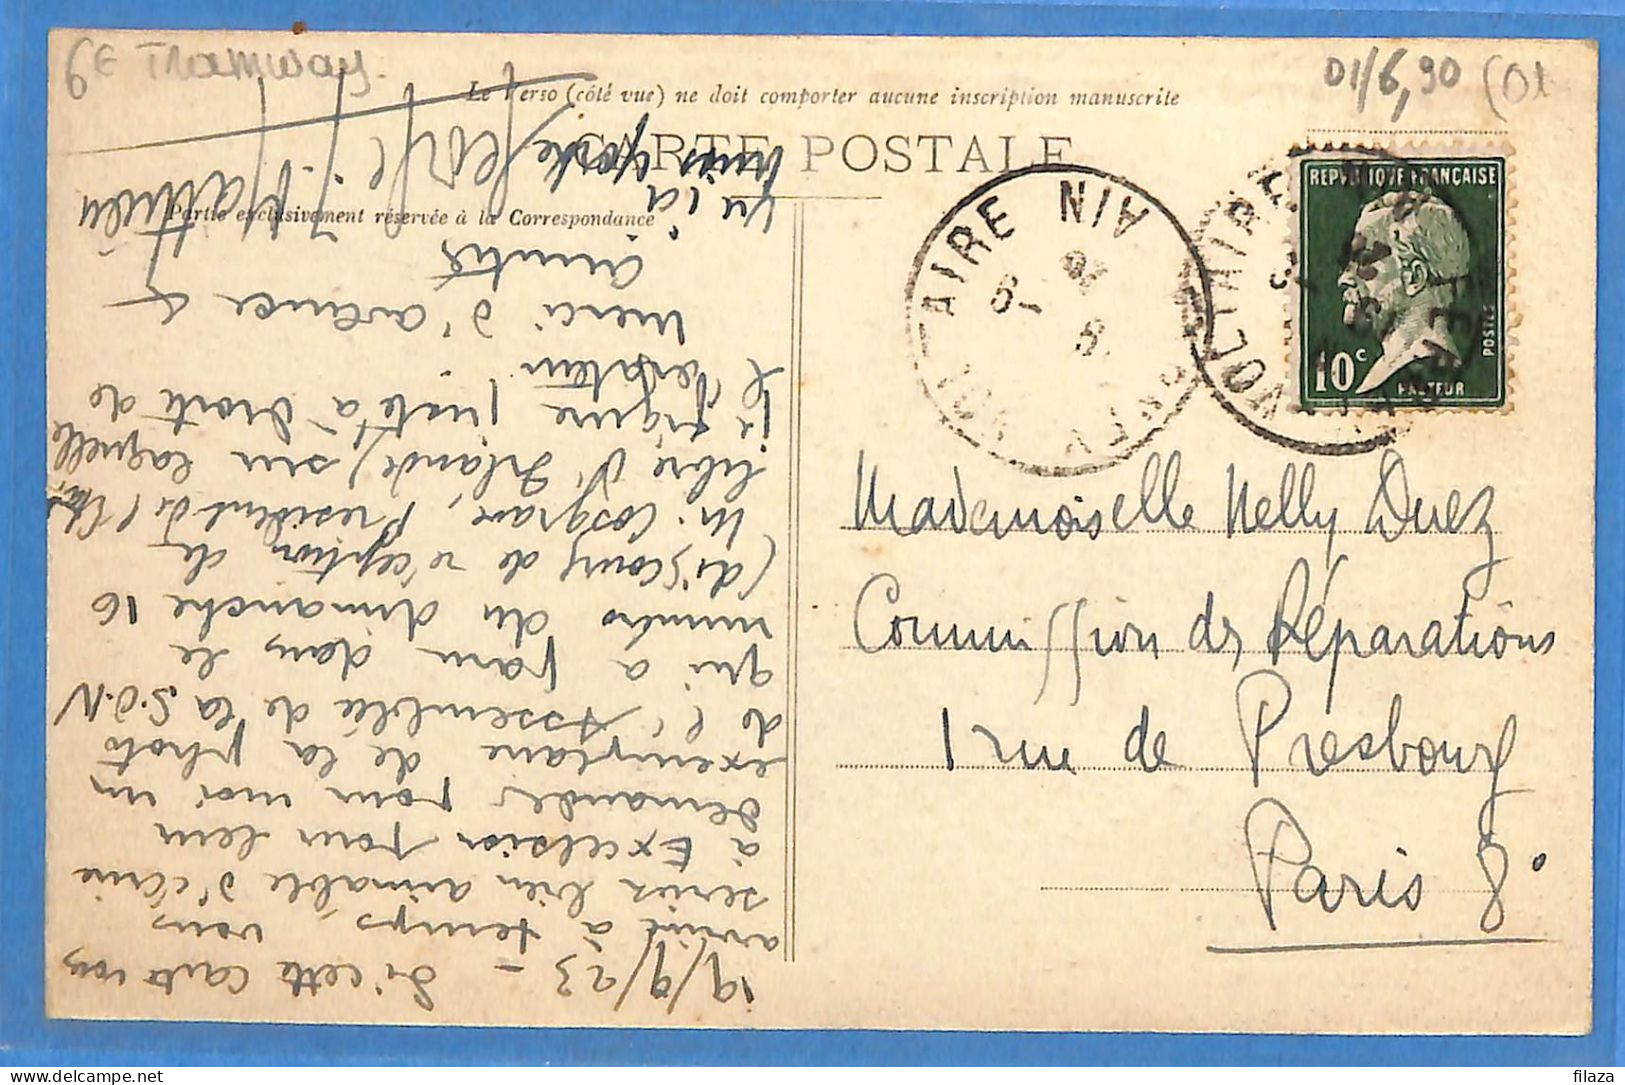 Ge Tramway.
01/6,90 (01
Le Verso (côté vue) ne doit comporter aucune inscription manuscrite
CARTE POSTALE
Partie exclusivement réservée à la Correspondance
RÉPUBLIQUE FRANÇAISE
10c
POSTES
PASTEUR
AIN
VOLTAIRE
Mademoiselle Nelly Duez
Commission des Réparations
1 rue de Presbourg
Paris 8°
19/9/23 - Si cette carte vous
arrive à temps, vous
seriez bien aimable d'écrire
à Excelsior pour leur
demander pour moi un
exemplaire de la photo
de l'Assemblée de la S.D.N
qui a paru dans le
numéro du dimanche 16
(discours de réception de
M. Cosgrave, Président de l'Etat
libre d'Irlande) sur laquelle
je figure juste à droite de
l'orateur.
Merci d'avance &
amitiés
delcampe.net
filaza